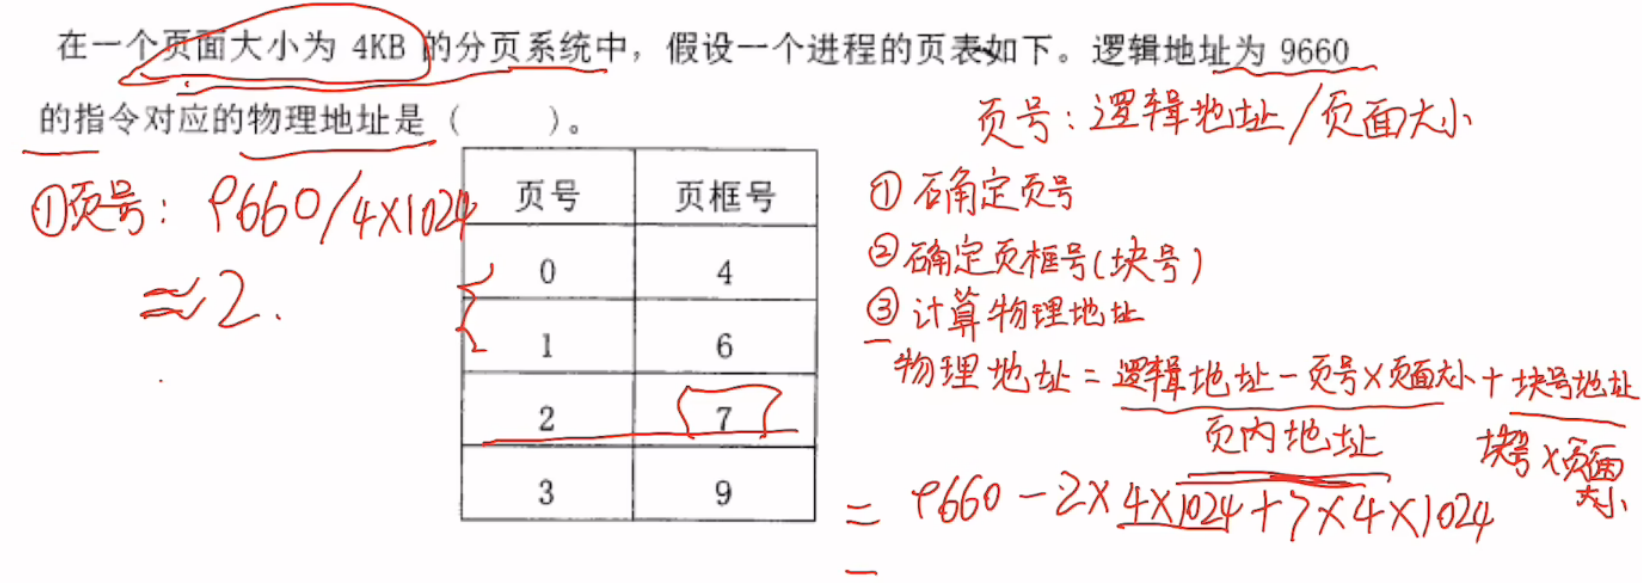 在一个页面大小为 4KB 的分页系统中，假设一个进程的页表如下。逻辑地址为 9660
的指令对应的物理地址是（　　）。
页号：逻辑地址/页面大小
①页号：9660/4×1024
≈2.
页号 页框号
0 4
1 6
2 7
3 9
①确定页号
②确定页框号(块号)
③计算物理地址
物理地址=逻辑地址-页号×页面大小+块号地址
页内地址
块号×页面
大小
= 9660-2×4×1024+7×4×1024
=